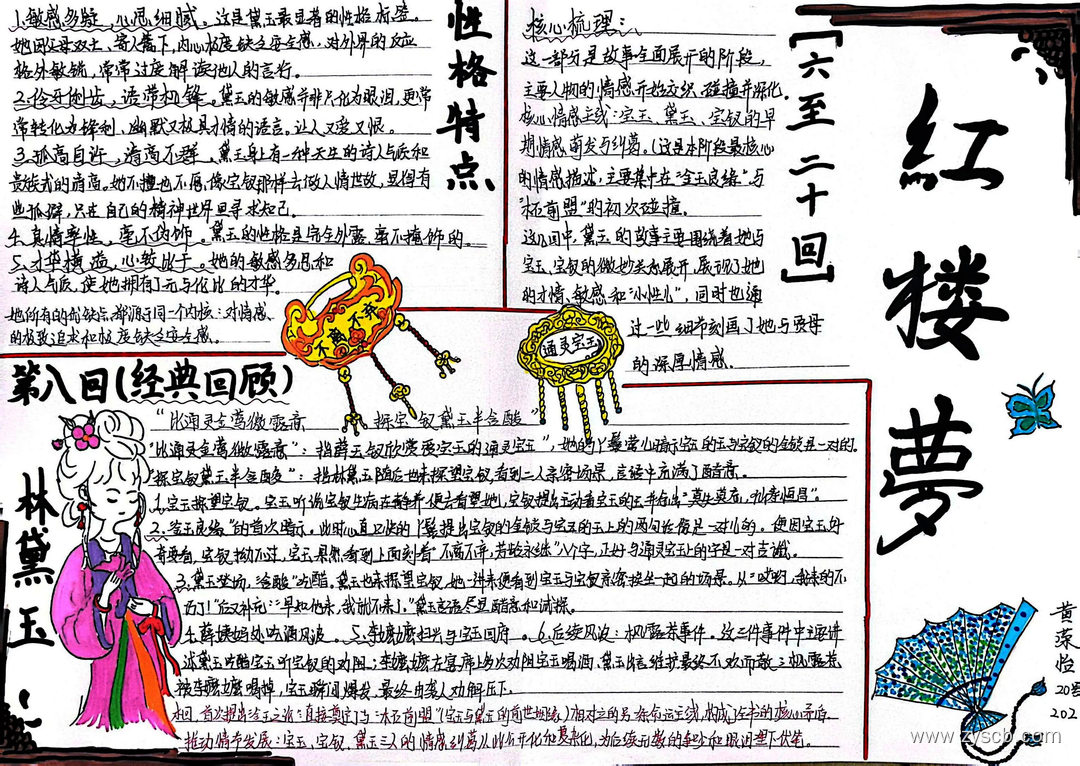 紅楼夢
[六至二十回]
核心梳理：
这一部分是故事全面展开的阶段，
主要人物的情感开始交织、碰撞并深化。
核心情感主线：宝玉、黛玉、宝钗的早
期情感萌发与纠葛。(这是本阶段最核心
的情感描述，主要集中在"金玉良缘"与
"木石前盟"的初次碰撞。
这几回中，黛玉的故事主要围绕着她与
宝玉、宝钗的微妙关系展开，展现了她
的才情、敏感和"小性儿"，同时也通
过一些细节刻画了她与贾母
的深厚情感。
性格特点
1.敏感多疑，心思细腻。这是黛玉最显著的性格标签。
她因父母双亡、寄人篱下，内心极度缺乏安全感，对外界的反应
格外敏锐，常常过度解读他人的言行。
2.伶牙俐齿，语带机锋。黛玉的敏感并非只化为眼泪，更常
常转化为锋利、幽默又极具才情的语言。让人又爱又恨。
3.孤高自许，清高不群。黛玉身上有一种天生的诗人气质和
贵族式的清高。她不擅也不屑像宝钗那样去做人情世故，显得有
些孤僻，只在自己的精神世界里寻求知己。
4.真情率性，毫不伪饰。黛玉的性格是完全外露、毫不掩饰的。
5.才华横溢，心较比干。她的敏感多思和
诗人气质，使她拥有了无与伦比的才华。
她所有的优缺点都源于同一个内核：对情感
的极致追求和极度缺乏安全感。
不离不弃
通灵宝玉
第八回(经典回顾)
"比通灵金莺微露意 探宝钗黛玉半含酸"
"比通灵金莺微露意"：指薛宝钗欣赏贾宝玉的通灵宝玉"，她的丫鬟莺儿暗示宝玉的玉与宝钗的金锁是一对的。
"探宝钗黛玉半含酸"：指林黛玉随后也来探望宝钗，看到二人亲密场景，言语中充满了醋意。
1.宝玉探望宝钗。宝玉听说宝钗生病在静养，便去看望她，宝钗提出主动看宝玉的玉并念出"莫失莫忘，仙寿恒昌"。
2."金玉良缘"的首次暗示。此时心直口快的丫鬟提出宝钗的金锁与宝玉的玉上的两句话像是一对儿的。使因宝玉好
奇要看，宝钗拗不过，宝玉果然看到上面刻着"不离不弃，芳龄永继"八个字，正好与通灵宝玉上的字是一对吉谶。
3.黛玉登场，"含酸"吃醋。黛玉也来探望宝钗，她一进来便看到宝玉与宝钗亲密挨坐一起的场景。从"哎哟，我来的不
巧了！"后又补充："早知他来，我就不来了。"黛玉言语尽显醋意和试探。
4.薛姨妈处吃酒风波。5.李嬷嬷扫兴与宝玉回府。6.后续风波：枫露茶事件。这三件事件中主要讲
述黛玉吃醋宝玉听宝钗的劝阻；李嬷嬷在宴席上多次劝阻宝玉喝酒，黛玉
被李嬷嬷喝掉，宝玉瞬间爆发，最终由袭人劝解压下。
推动情节发展：宝玉、宝钗、黛玉三人的情感纠葛从此公开化和复杂化，为后续无数的争吵和眼泪埋下伏笔。
林黛玉
www.zyscb.com